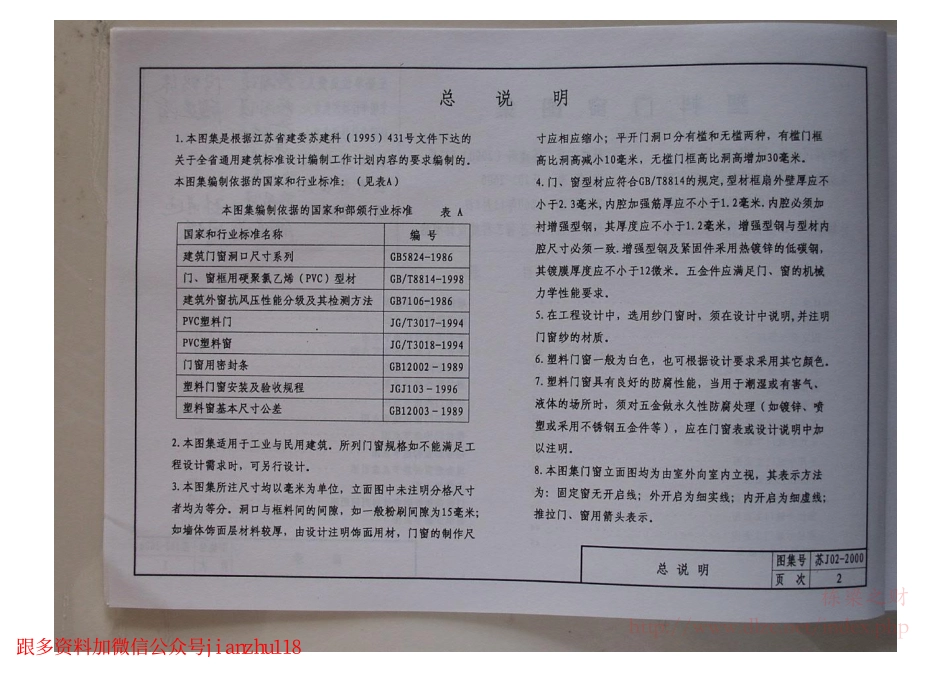 总 说 明
1.本图集是根据江苏省建委苏建科（1995）431号文件下达的
关于全省通用建筑标准设计编制工作计划内容的要求编制的。
本图集编制依据的国家和行业标准：（见表A）
本图集编制依据的国家和部颁行业标准 表 A
国家和行业标准名称 编 号
建筑门窗洞口尺寸系列 GB5824-1986
门、窗框用硬聚氯乙烯（PVC）型材 GB/T8814-1998
建筑外窗抗风压性能分级及其检测方法 GB7106-1986
PVC塑料门 JG/T3017-1994
PVC塑料窗 JG/T3018-1994
门窗用密封条 GB12002-1989
塑料门窗安装及验收规程 JGJ103-1996
塑料窗基本尺寸公差 GB12003-1989
2.本图集适用于工业与民用建筑。所列门窗规格如不能满足工
程设计需求时，可另行设计。
3.本图集所注尺寸均以毫米为单位，立面图中未注明分格尺寸
者均为等分。洞口与框料间的间隙，如一般粉刷间隙为15毫米；
如墙体饰面层材料较厚，由设计注明饰面用材，门窗的制作尺
寸应相应缩小；平开门洞口分有槛和无槛两种，有槛门框
高比洞高减小10毫米，无槛门框高比洞高增加30毫米。
4.门、窗型材应符合GB/T8814的规定,型材框扇外壁厚应不
小于2.3毫米,内腔加强筋厚应不小于1.2毫米.内腔必须加
衬增强型钢，其厚度应不小于1.2毫米，增强型钢与型材内
腔尺寸必须一致.增强型钢及紧固件采用热镀锌的低碳钢，
其镀膜厚度应不小于12微米。五金件应满足门、窗的机械
力学性能要求。
5.在工程设计中，选用纱门窗时，须在设计中说明,并注明
门窗纱的材质。
6.塑料门窗一般为白色，也可根据设计要求采用其它颜色。
7.塑料门窗具有良好的防腐性能，当用于潮湿或有害气、
液体的场所时，须对五金做永久性防腐处理（如镀锌、喷
塑或采用不锈钢五金件等），应在门窗表或设计说明中加
以注明。
8.本图集门窗立面图均为由室外向室内立视，其表示方法
为：固定窗无开启线；外开启为细实线；内开启为细虚线；
推拉门、窗用箭头表示。
总 说 明
图集号 苏J02-2000
页 次 2
跟多资料加微信公众号jianzhu118